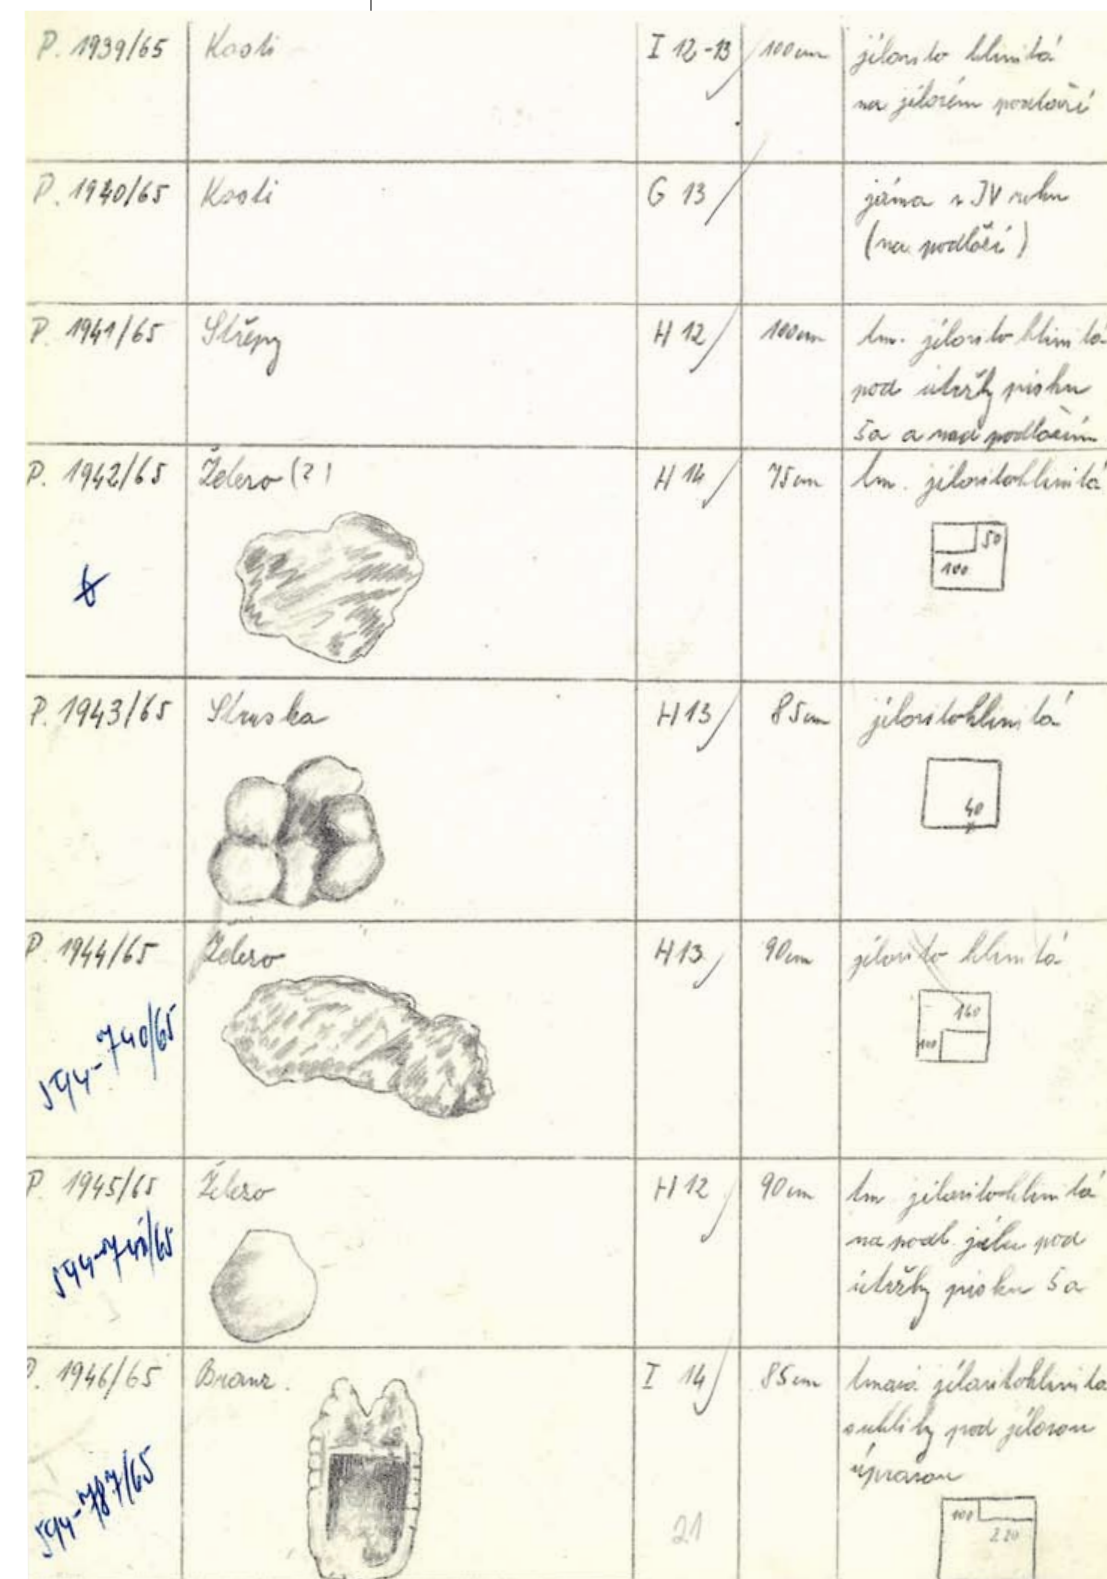 P. 1939/65 Kosti I 12-13 100cm jílovito hlinitá
na jílovém podloží
P. 1940/65 Kosti G 13 jáma v JV rohu
(na podloží)
P. 1941/65 Střepy H 12 100cm tm. jílovito hlinitá
pod útržky písku
5a a nad podložím
P. 1942/65 Železo (?) H 14 75cm tm. jílovitohlinitá
50
100
6
P. 1943/65 Struska H13 85cm jílovitohlinitá
40
P. 1944/65 Železo H13 90cm jílovito hlinitá
160
100
594-740/65
P. 1945/65 Železo H 12 90cm tm jílovitohlinitá
na podl. jílu pod
útržky písku 5a
P. 1946/65 Bronz. I 14 85cm tmavá jílovitohlinitá
s uhlíky pod jílovou
úpravou
594-787/65
21
100
220